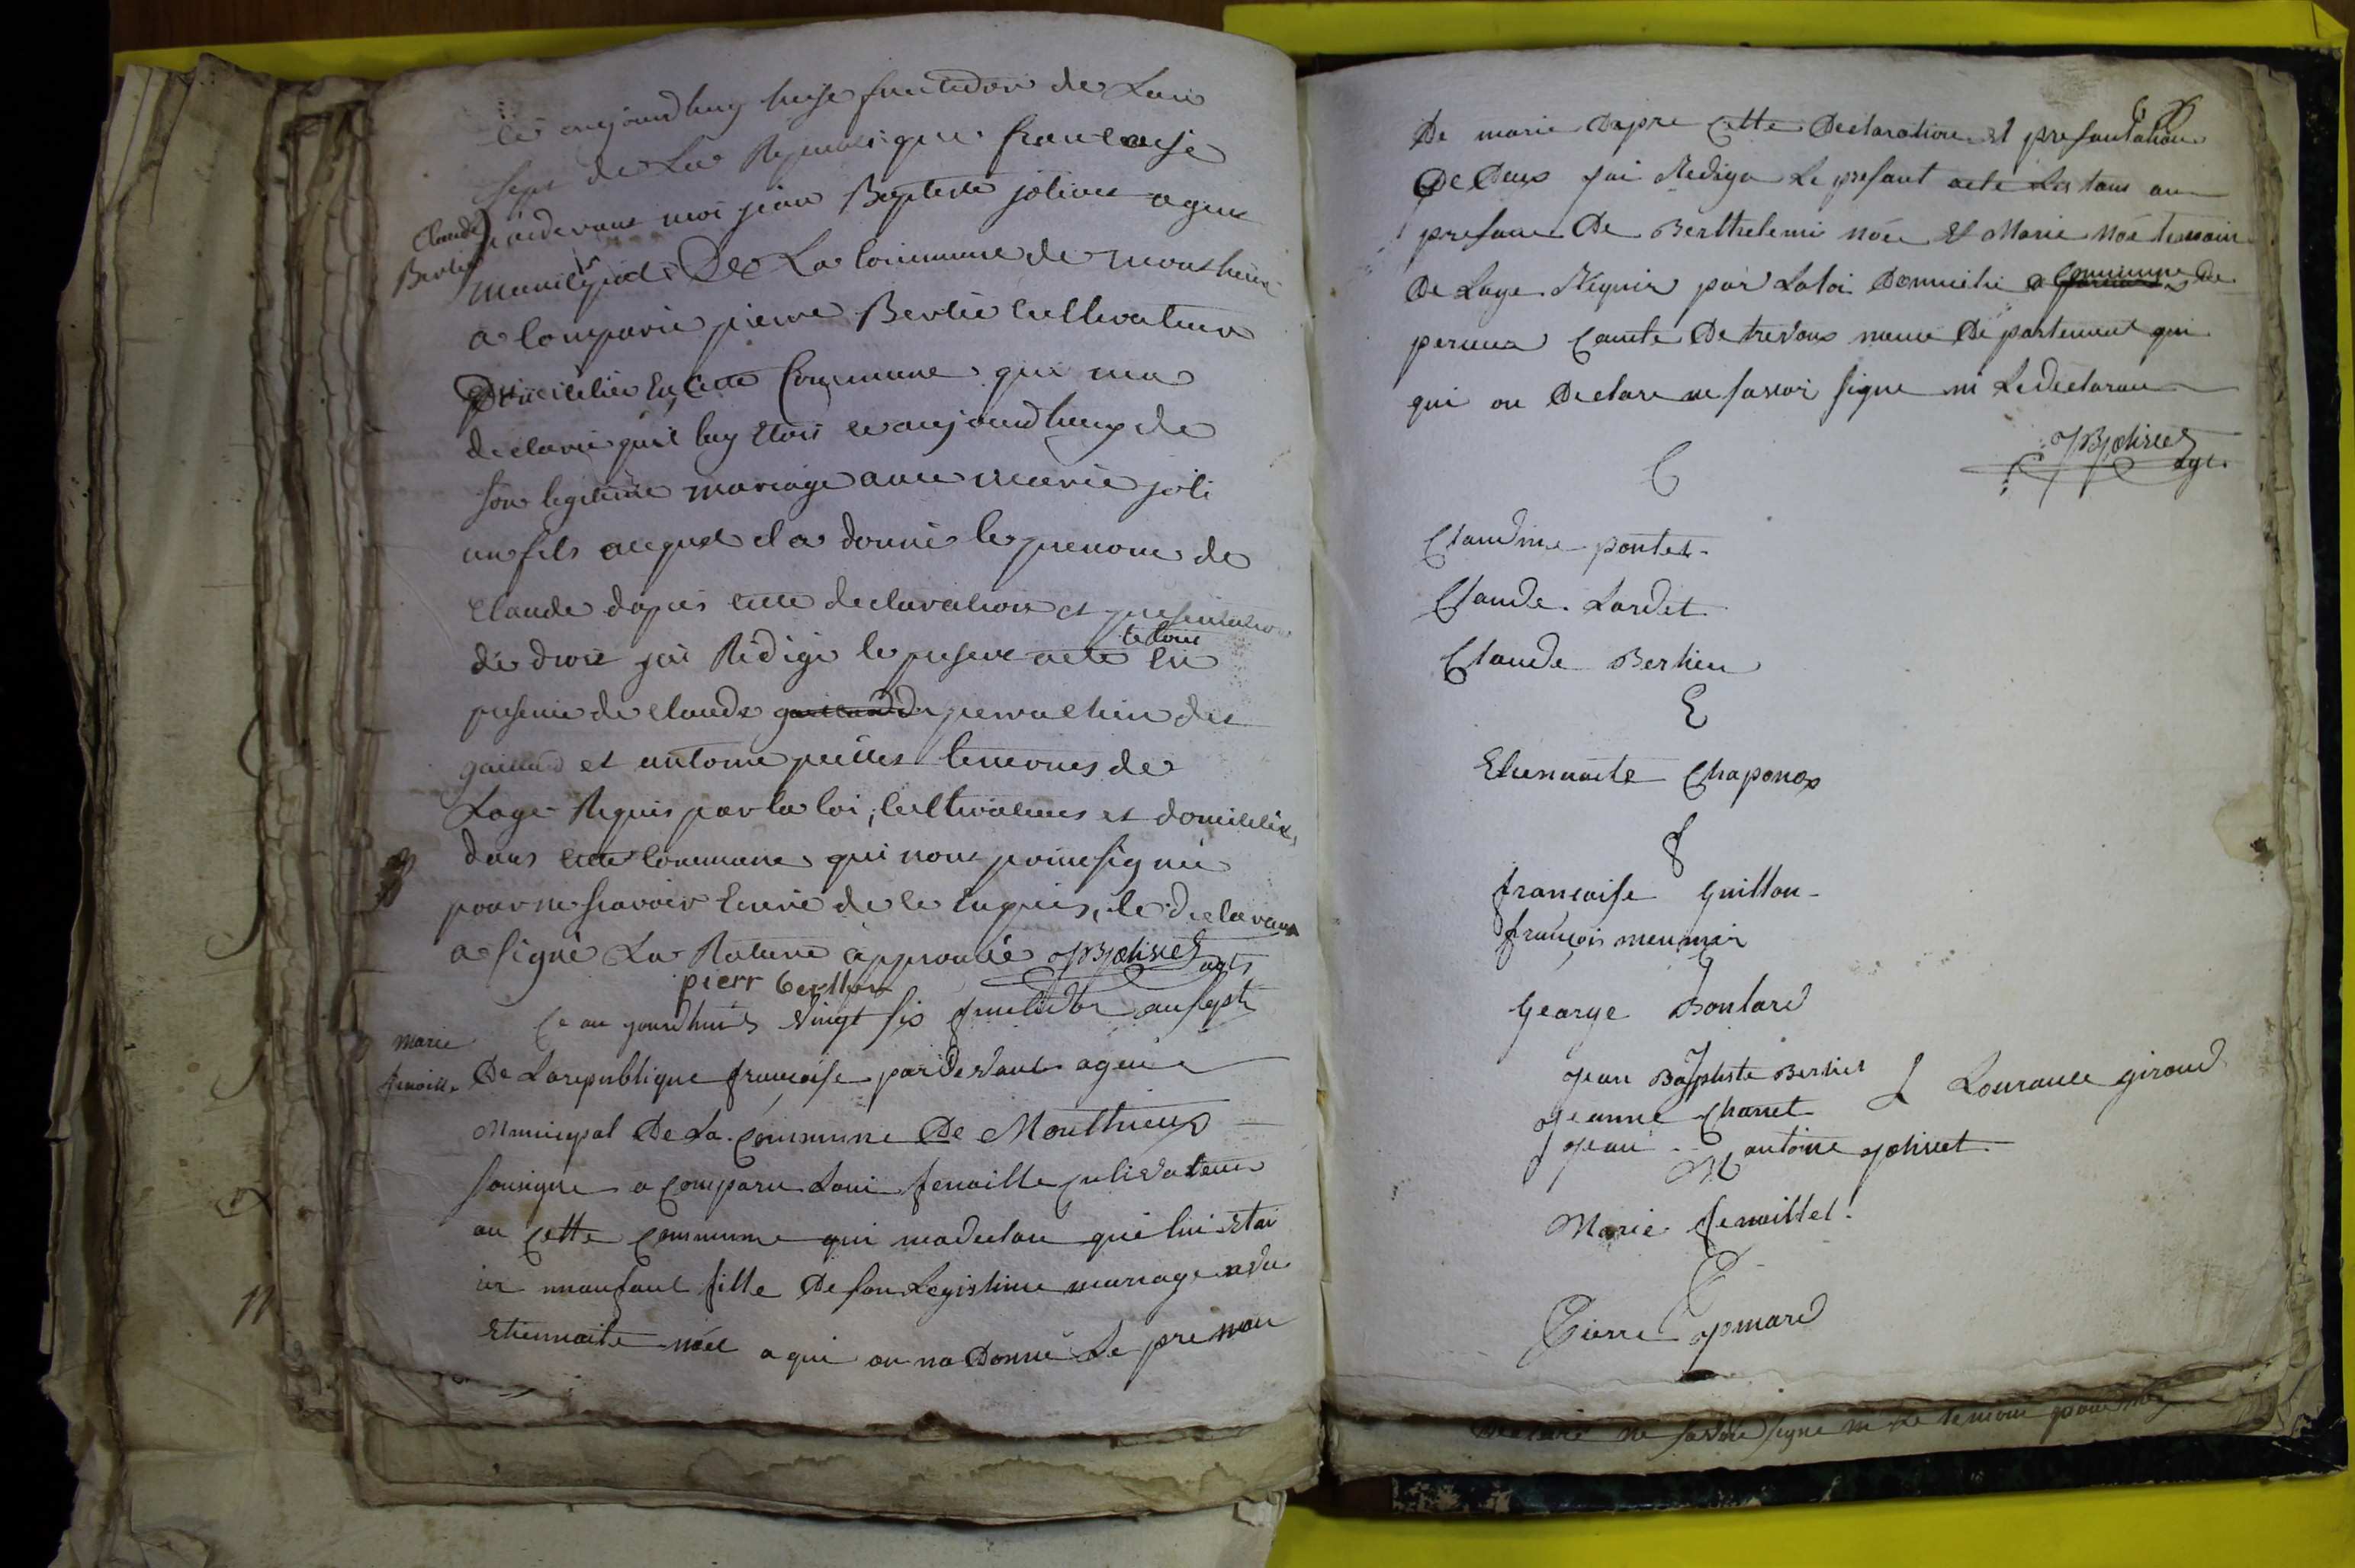 Ce aujourdhuy treise fructidor de Lan
sept de La Republique francaise
pardevant moi jean Baptiste jolivet agent
Claude
Bertier
municipal De La Commune de monthieux
a comparu pierre Bertié Cultivateur
Domicilié En cette Commune qui ma
declaré quil luy etoit né aujourdhuy de
son legitime mariage avec marie joli
un fils auquel el a donné le prenom de
Claude dapres cette declaration et presentation
de droit jai Rédigé le present acte le tout En
presence de claude gaillard perrachin dit
gaillard et antoine temoins de
Lage Requis par la loi, Cultivateurs et domicilliés
dans cette Commune qui nont point signé
pour ne scavoir Ecrire de ce enquis, le declarant
a signé La Rature approuvée JBJolivet agt
pierr berthier
marie
fenoille
Ce au jourdhuis vingt six fructidor an sepst
De La republique francaise par Devant agent
Municipal De La Commune De Monthieux
sousigne a Comparu Loui fenoille cultivateur
au Cette Commune qui ma declare que lui etai
ne unanfant fille De son Legistime mariage avec
Etiennaite noël a qui on na Donné Le pre nom
De marie Dapre Cette Declaration et presantation
De Deux jai Redige Le presant acte Les tous au
presance De Berthelemi noée et Marie noé temoin
De Lage Requis par La loi Domicilie a Commune de
perieux Canton De trevoux meme De partement qui
qui on Declare ne savoir signe ni Le declarant
JBJolivet
agt
C
Claudine pontet
Claude Lardet
Claude Berthier
E
Etiennaite Chaponox
f
francaise Guillon
françois meunier
G
George Boulard
J
Jean Baptiste Bertiet
Jeanne Charret
L Lourance giroud
Jean antoine Jolivet
M
Marie fenoillet
P
Pierre Jomard
Declaré ne savoir signe ni Le temoin